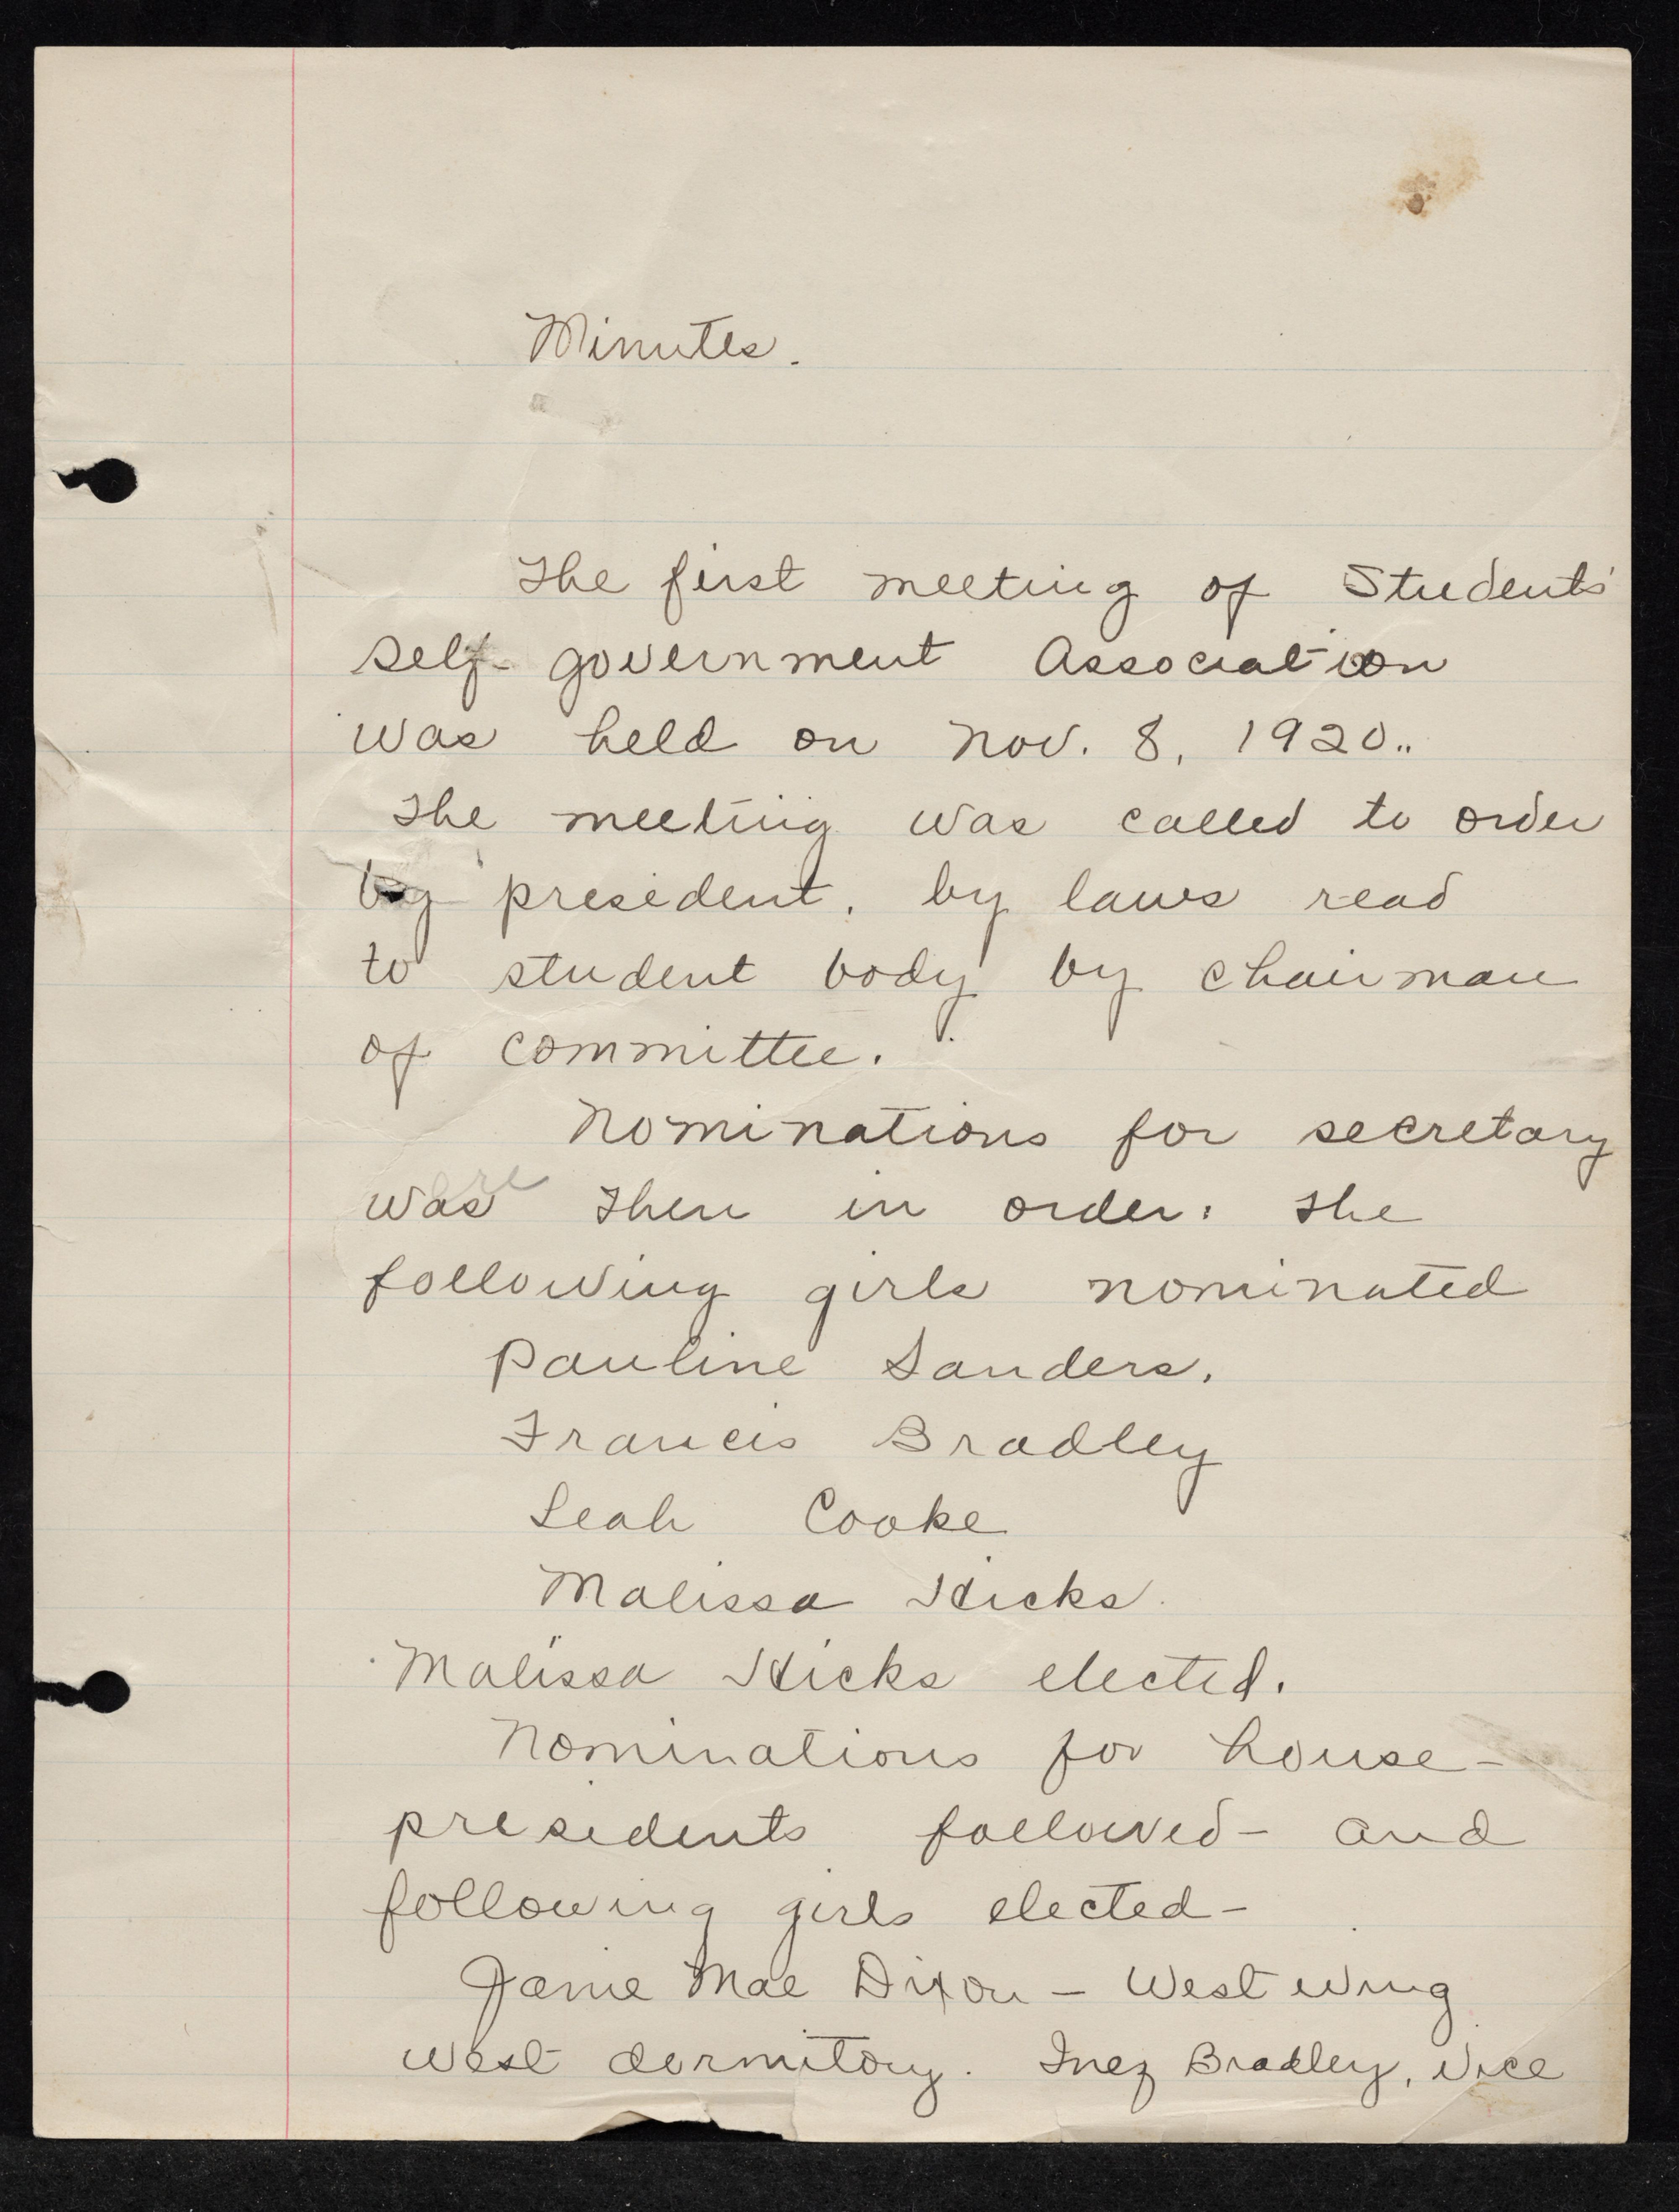 Minutes.
The first meeting of Students'
self-government Association
was held on Nov. 8, 1920..
The meeting was called to order
by president, by laws read
to student body by chairman
of committee.
Nominations for secretary
was then in order: the
following girls nominated
Pauline Sanders.
Francis Bradley
Leah Cooke
Malissa Hicks.
Malissa Hicks elected.
Nominations for house-
presidents followed - and
following girls elected -
Janie Mae Dixon - West wing
west dormitory. Inez Bradley, Vice